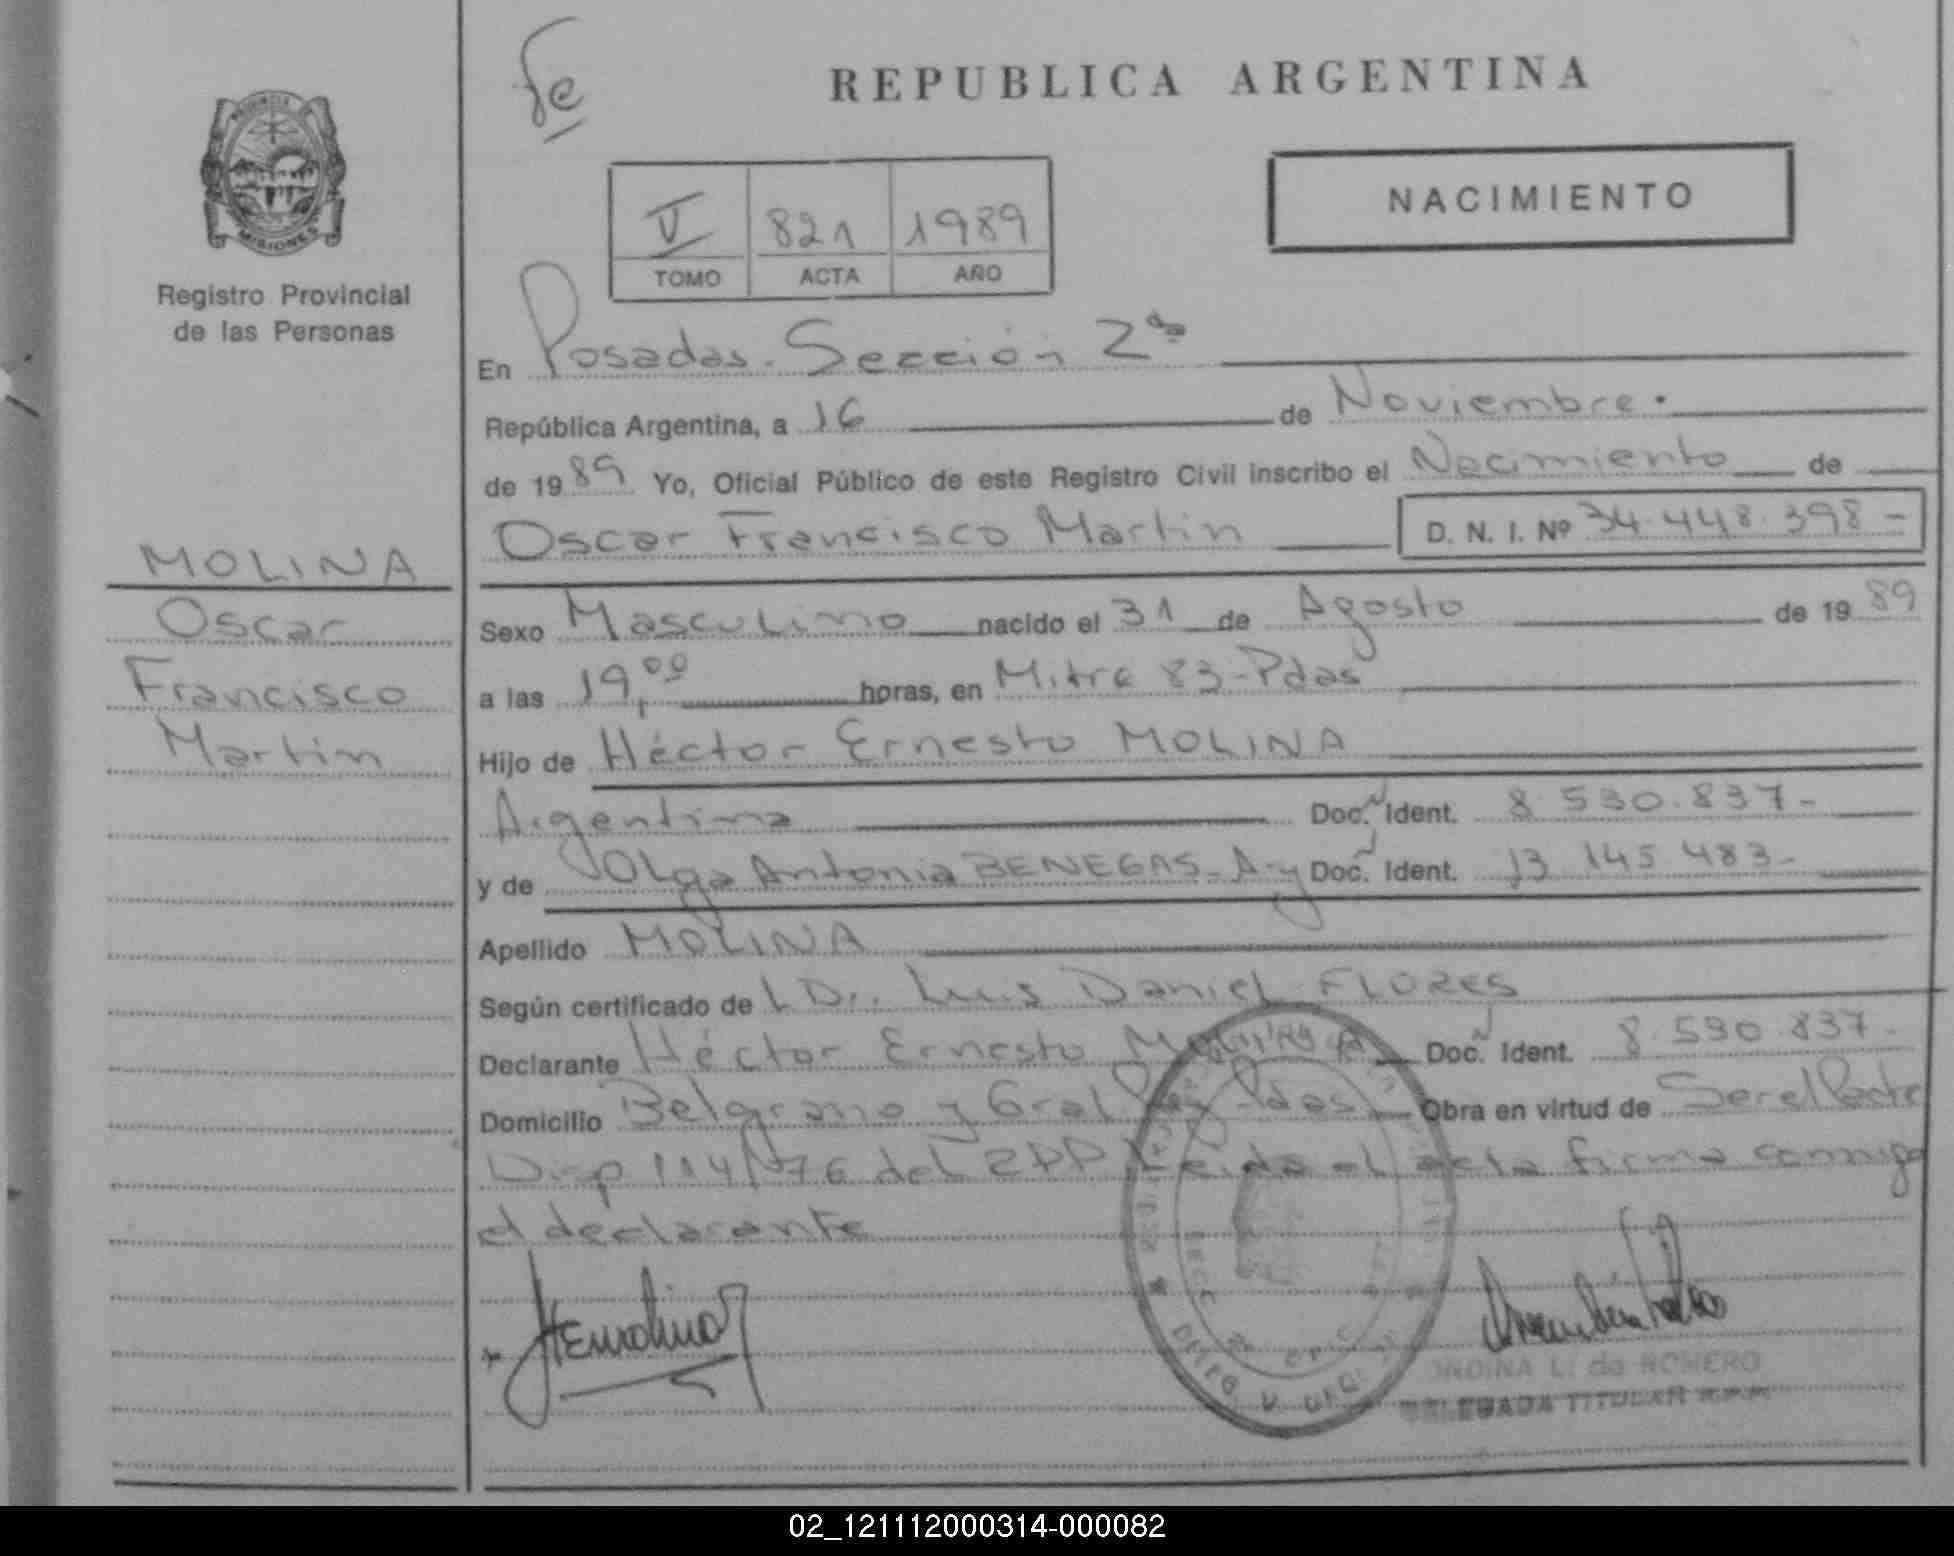 Fe
REPUBLICA ARGENTINA
PROVINCIA
MISIONES
Registro Provincial
de las Personas
V 821 1989
TOMO ACTA AÑO
NACIMIENTO
En Posadas. Sección 2ª
República Argentina, a 16 de Noviembre.
de 1989 Yo, Oficial Público de este Registro Civil inscribo el Nacimiento de
Oscar Francisco Martin D. N. I. Nº 34.448.398 -
MOLINA
Oscar
Francisco
Martin
Sexo Masculino nacido el 31 de Agosto de 1989
a las 19,00 horas, en Mitre 83-Pdas
Hijo de Héctor Ernesto MOLINA
Argentina Doc. Ident. 8.530.837-
y de Olga Antonia BENEGAS-A-y Doc. Ident. 13.145.483-
Apellido MOLINA
Según certificado de L Dr. Luis Daniel FLORES
Declarante Héctor Ernesto Doc. Ident. 8.530.837-
Domicilio Belgrano y Gral Paz-Pdas Obra en virtud de Ser el Padre
Disp 114/76 del RPP Leida el acta firma conmigo
el declarante
HEMolina
ONDINA L. de ROMERO
DELEGADA TITULAR R.P.P.
02_121112000314-000082